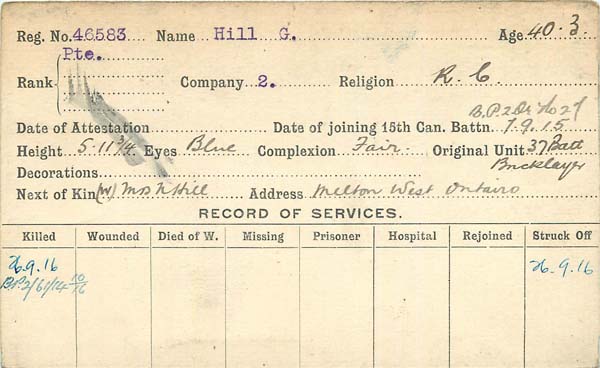 Reg. No. 46583 Name Hill G. Age 40.3
Pte.
Rank Company 2. Religion R. C.
B.P. 2 Di No 27
Date of Attestation Date of joining 15th Can. Battn. 7.9.15
Height 5-11 3/4 Eyes Blue Complexion Fair Original Unit 37 Batt
Decorations Bricklayer
Next of Kin (W) Mrs N Hill Address Melton West Ontairo
RECORD OF SERVICES.
Killed Wounded Died of W. Missing Prisoner Hospital Rejoined Struck Off
26.9.16 26.9.16
B.P.2/61/14 10/16